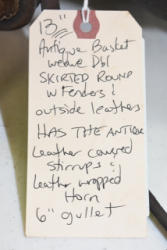 13"
Antique Basket
weave Dbl
SKIRTED ROUND
w Fenders &
outside leathers
HAS THE ANTIQUE
Leather covered
stirrups &
leather wrapped
Horn
6" gullet